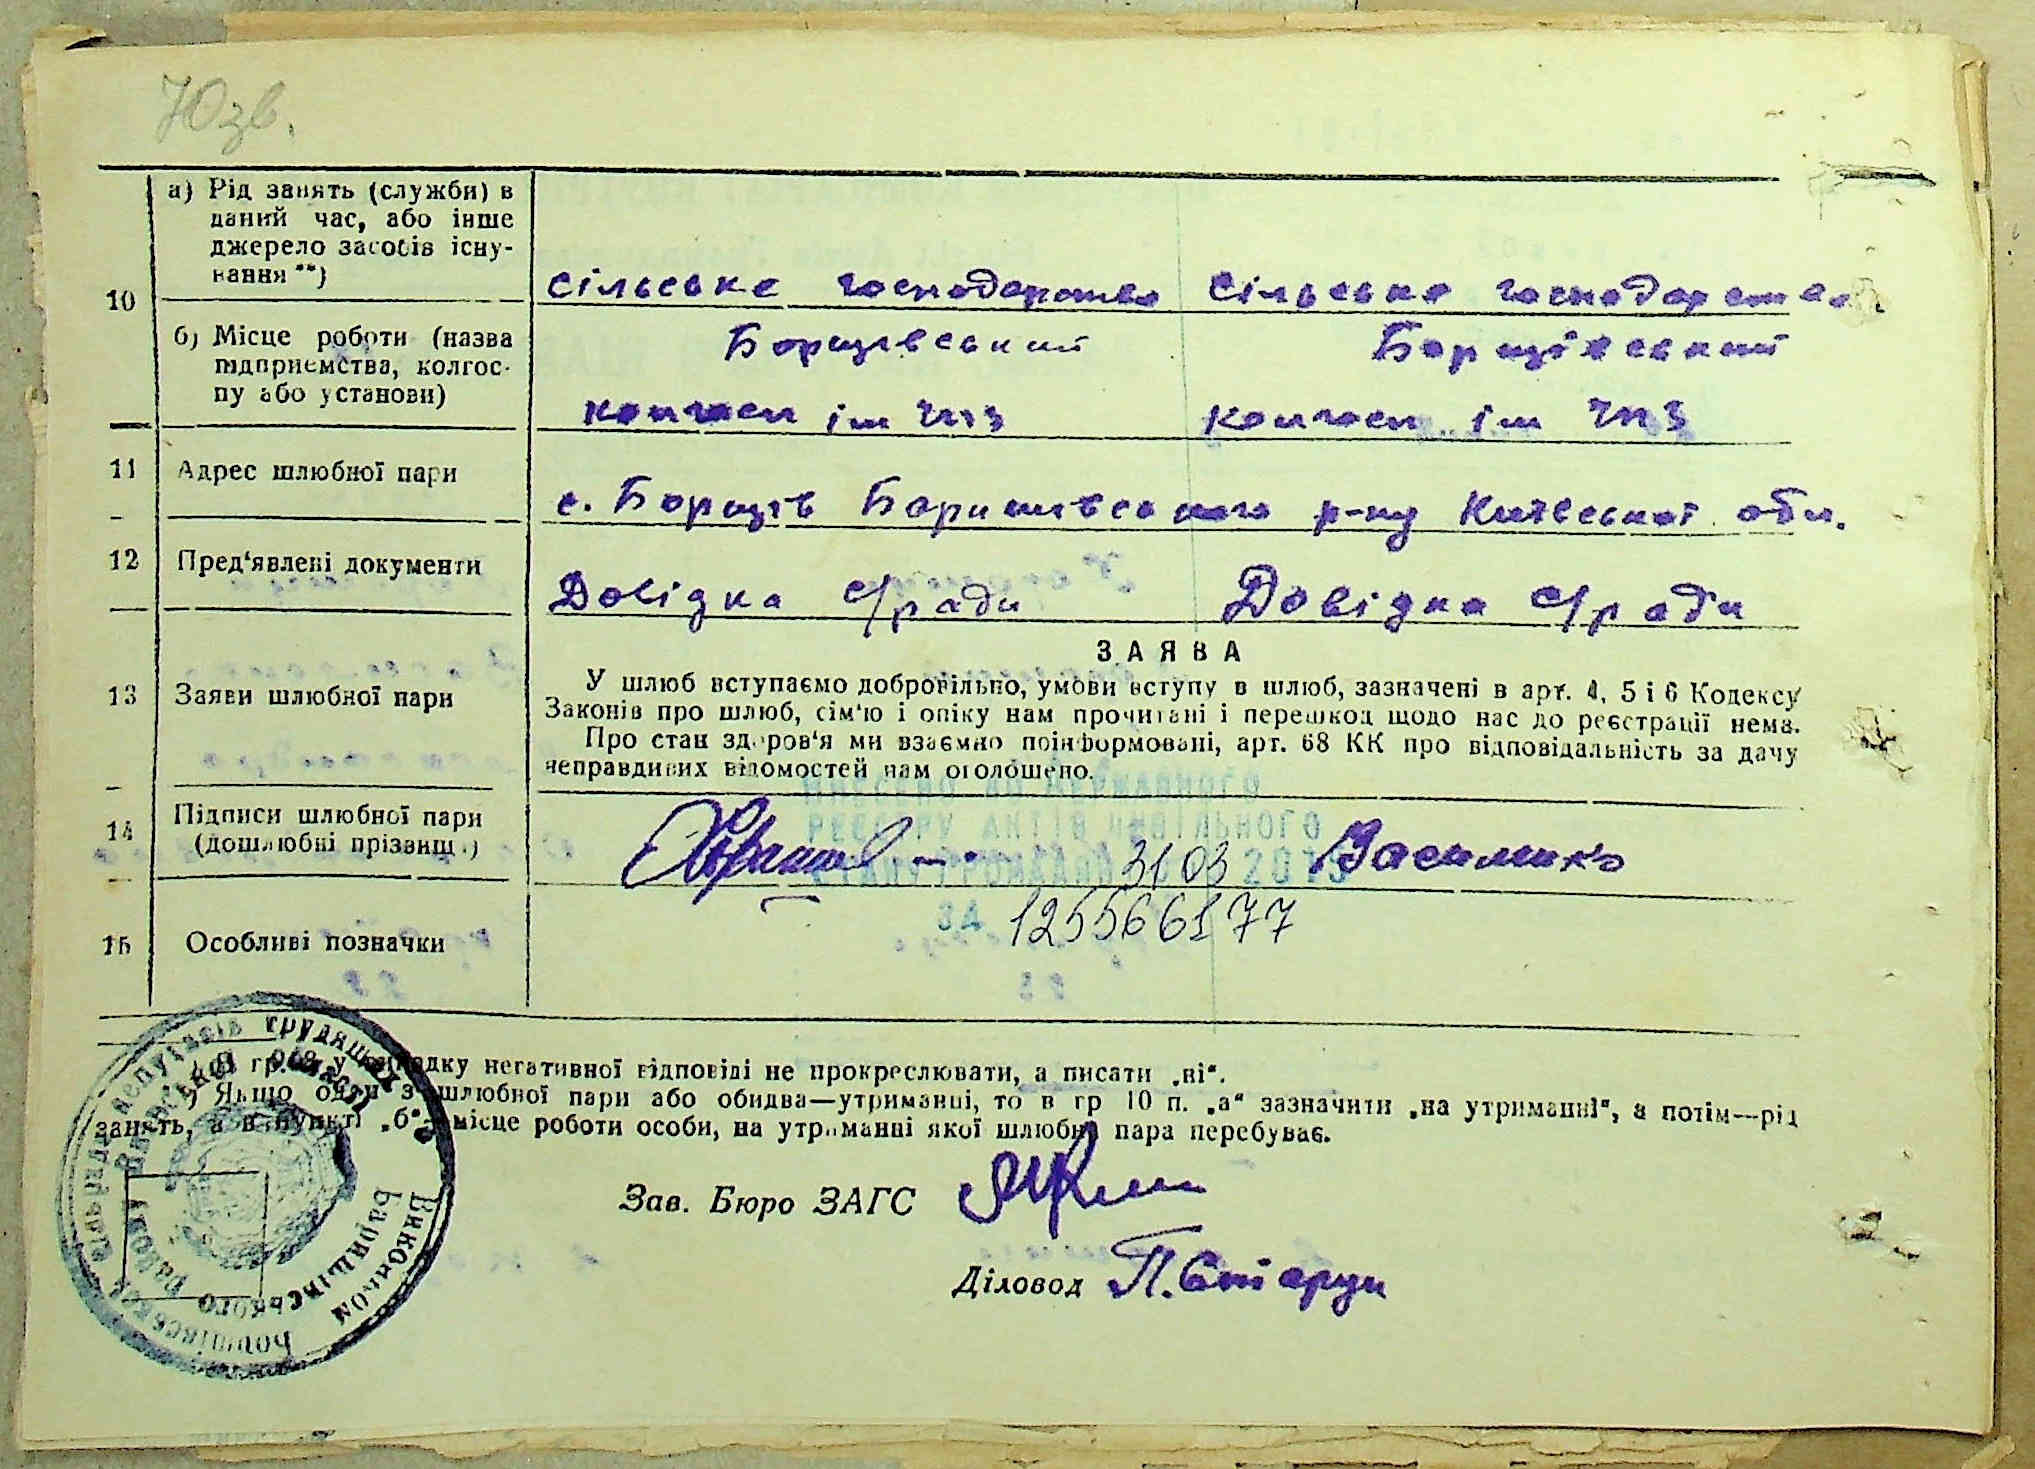 70зв.
10
а) Рід занять (служби) в
даний час, або інше
джерело засобів існу-
вання **)
сільське господарство сільське господарство
б) Місце роботи (назва
підприємства, колгос-
пу або установи)
Борщівський Борщівський
колгосп ім
колгосп ім
11 Адрес шлюбної пари
с. Борщів Баришівського р-ну Київської обл.
12 Пред'явлені документи
Довідка с/ради Довідка с/ради
ЗАЯВА
13 Заяви шлюбної пари
У шлюб вступаємо добровільно, умови вступу в шлюб, зазначені в арт. 4, 5 і 6 Кодексу
Законів про шлюб, сім'ю і опіку нам прочитані і перешкод щодо нас до реєстрації нема.
Про стан здоров'я ми взаємно поінформовані, арт. 68 КК про відповідальність за дачу
неправдивих відомостей нам оголошено.
ВНЕСЕНО ДО ДЕРЖАВНОГО
РЕЄСТРУ АКТІВ ЦИВІЛЬНОГО
СТАНУ ГРОМАДЯН 31 03
ЗА 1255661 77
14 Підписи шлюбної пари
(дошлюбні прізвища)
15 Особливі позначки
*) В гр. у випадку негативної відповіді не прокреслювати, а писати „ні“.
**) Якщо один з шлюбної пари або обидва—утриманці, то в гр 10 п. „а“ зазначити „на утриманні“, а потім—рід
занять, а в пункті „б“ місце роботи особи, на утриманні якої шлюбна пара перебуває.
Зав. Бюро ЗАГС
Діловод П.
Виконком
Баришівського району Київської області
депутатів трудящих